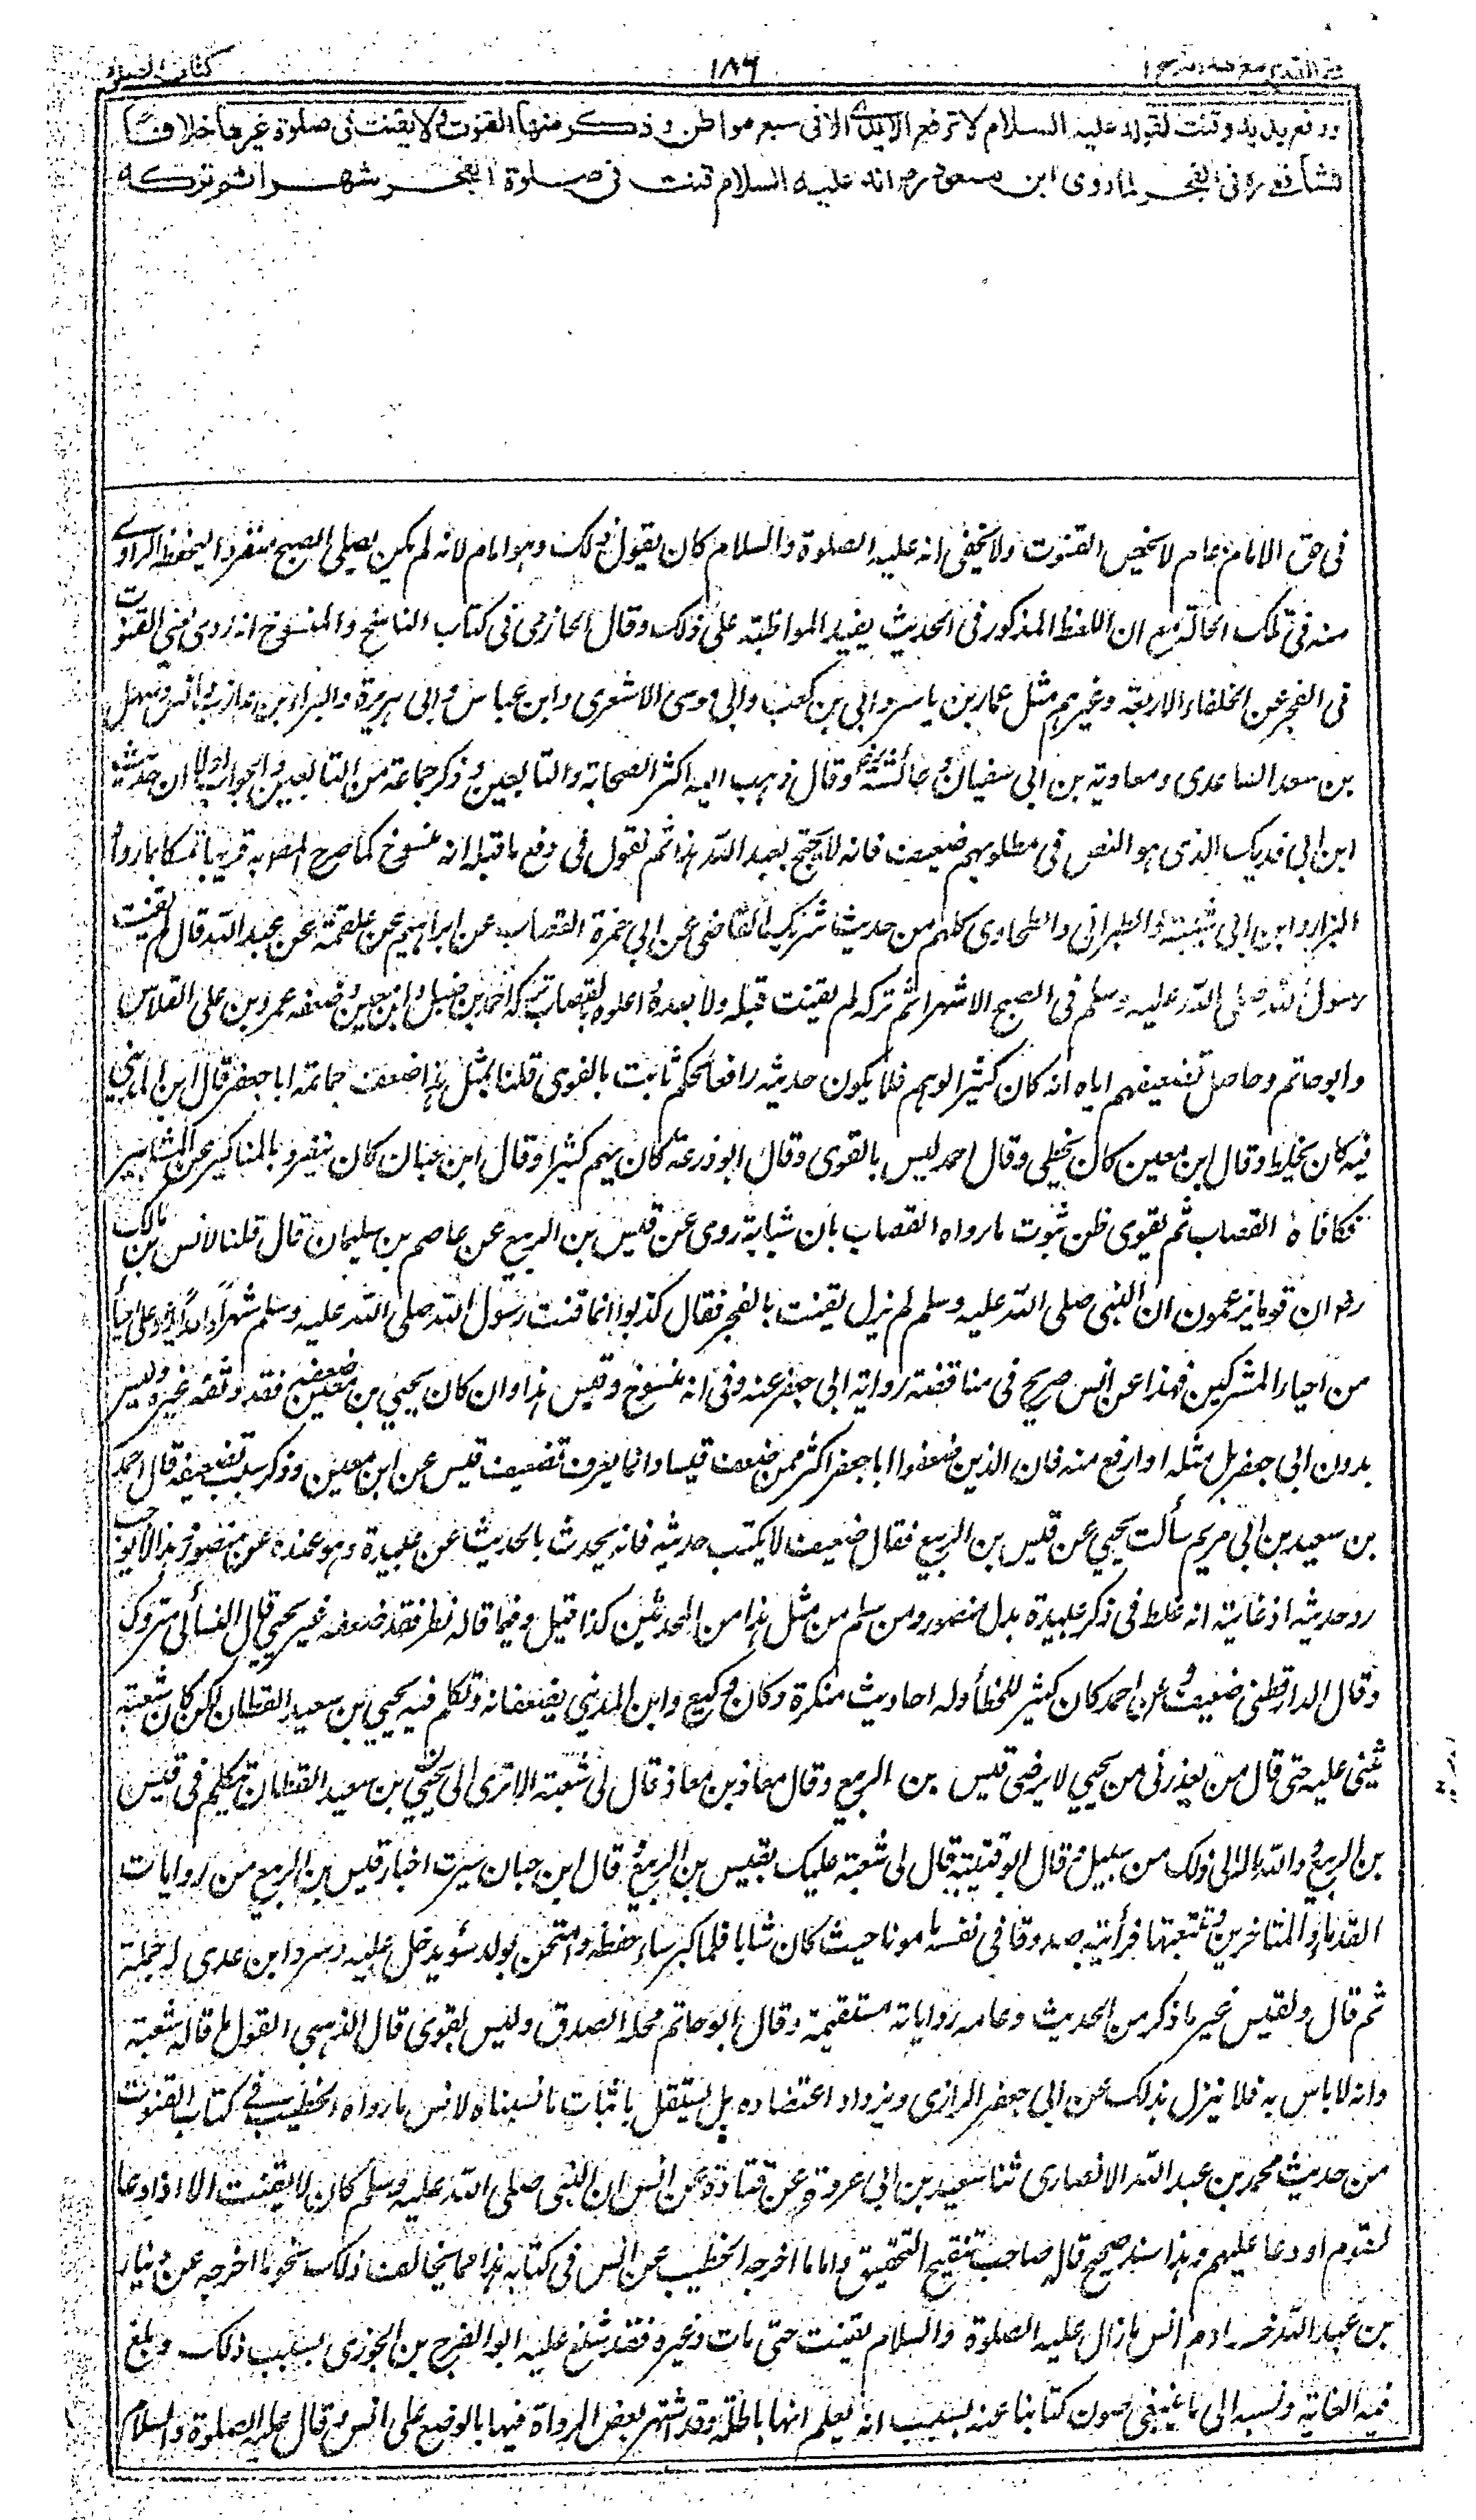 كتاب الصلوة
١٨٦
فتح القدير مع هدايه ج ١
ورفع يديه وقنت لقوله عليه السلام لا ترفع الايدى الا فى سبع مواطن وذكر منها القنوت ولا يقنت فى صلوة غيرها خلافا
للشافعى ره فى الفجر لما روى ابن مسعود رض انه عليه السلام قنت فى صلوة الفجر شهرا ثم تركه
فى حق الامام عام لا يخص القنوت ولا يخفى انه عليه الصلوة والسلام كان يقول ذلك وهو امام لانه لم يكن يصلى الصبح منفردا ليحفظ الراوى
منه فى تلك الحالة مع ان اللفظ المذكور فى الحديث يفيد المواظبة على ذلك وقال الحازمى فى كتاب الناسخ والمنسوخ انه روى يعنى القنوت
فى الفجر عن الخلفاء الاربعة وغيرهم مثل عمار بن ياسر وابى بن كعب وابى موسى الاشعرى وابن عباس وابى هريرة والبراء بن عازب وانس وسهل
بن سعد الساعدى ومعاوية بن ابى سفيان وعائشة رض وقال ذهب اليه اكثر الصحابة والتابعين وذكر جماعة من التابعين والجواب اولا ان حديث
ابن ابى فديك الذى هو النص فى مطلوبهم ضعيف فانه لا يحتج بعبد الله هذا ثم نقول فى دفع ما قبله انه منسوخ كما صرح المصنف به قريبا تمسكا بما رواه
البزار وابن ابى شيبة والطبرانى والطحاوى كلهم من حديث شريك القاضى عن ابى حمزة القصاب عن ابراهيم عن علقمة عن عبد الله قال لم يقنت
رسول الله صلى الله عليه وسلم فى الصبح الا شهرا ثم تركه لم يقنت قبله ولا بعده اعلوه بالقصاب تركه احمد بن حنبل وابن معين وضعفه عمرو بن على الفلاس
وابو حاتم وحاصل تضعيفهم اياه انه كان كثير الوهم فلا يكون حديثه رافعا لحكم ثابت بالقوى قلنا بمثل هذا ضعف جماعة ابا جعفر قال ابن المدينى
فيه كان يخلط وقال ابن معين كان يخطى وقال احمد ليس بالقوى وقال ابو زرعة كان يهم كثيرا وقال ابن حبان كان ينفرد بالمناكير عن المشاهير
فكافاه القصاب ثم يقوى ظن ثبوت ما رواه القصاب بان شبابة روى عن قيس بن الربيع عن عاصم بن سليمان قال قلنا لانس بن مالك
رض ان قوما يزعمون ان النبى صلى الله عليه وسلم لم يزل يقنت بالفجر فقال كذبوا انما قنت رسول الله صلى الله عليه وسلم شهرا واحدا يدعو على احياء
من احياء المشركين فهذا عن انس صريح فى مناقضة رواية ابى جعفر عنه وفى انه منسوخ وقيس هذا وان كان يحيى بن معين ضعفه فقد وثقه غيره وليس
بدون ابى جعفر بل مثله او ارفع منه فان الذين ضعفوا ابا جعفر اكثر ممن ضعف قيسا وانما يعرف تضعيف قيس عن ابن معين وذكر سبب تضعيفه قال احمد
بن سعيد بن ابى مريم سألت يحيى عن قيس بن الربيع فقال ضعيف لا يكتب حديثه فانه يحدث بالحديث عن عبيدة وهو عنده عن منصور وهذا لا يوجب
رد حديثه اذ غايته انه غلط فى ذكر عبيدة بدل منصور ومن سلم من مثل هذا من المحدثين كذا قيل وفيما قاله نظر فقد ضعفه غير يحيى قال النسائى متروك
وقال الدارقطنى ضعيف وعن احمد كان كثير الخطأ وله احاديث منكرة وكان وكيع وابن المدينى يضعفانه وتكلم فيه يحيى بن سعيد القطان لكن كان شعبة
يثنى عليه حتى قال من يعذرنى من يحيى لا يرضى قيس بن الربيع وقال معاذ بن معاذ قال لى شعبة الا ترى الى يحيى بن سعيد القطان يتكلم فى قيس
بن الربيع والله ما الى ذلك من سبيل وقال ابو قتيبة قال لى شعبة عليك بقيس بن الربيع قال ابن حبان سبرت اخبار قيس بن الربيع من روايات
القدماء والمتاخرين وتتبعتها فرأيته صدوقا فى نفسه مامونا حيث كان شابا فلما كبر ساء حفظه وامتحن بولد سوء يدخل عليه وسرد ابن عدى له جملة
ثم قال ولقيس غير ما ذكر من الحديث وعامه رواياته مستقيمة وقال ابو حاتم محله الصدق وليس بقوى قال الذهبى القول ما قاله شعبة
وانه لا باس به فلا ينزل بذلك عن ابى جعفر الرازى ويزداد اعتضاده بل يستقل باثبات ما نسبناه لانس ما رواه الخطيب فى كتاب القنوت
من حديث محمد بن عبد الله الانصارى ثنا سعيد بن ابى عروة عن قتادة عن انس ان النبى صلى الله عليه وسلم كان لا يقنت الا اذا دعا
لقوم او دعا عليهم وهذا سند صحيح قاله صاحب تنقيح التحقيق واما ما اخرجه الخطيب عن انس فى كتابه هذا مما يخالف ذلك نحو ما اخرجه عن دينار
بن عبد الله خادم انس ما زال عليه الصلوة والسلام يقنت حتى مات وغيره فقد شنع عليه ابو الفرج بن الجوزى بسبب ذلك وبلغ
فيه الغاية ونسبه الى ما ينبغى صون كتابنا عنه بسبب انه يعلم انها باطلة وقد اشتهر بعض الرواة فيها بالوضع على انس وقال عليه الصلوة والسلام